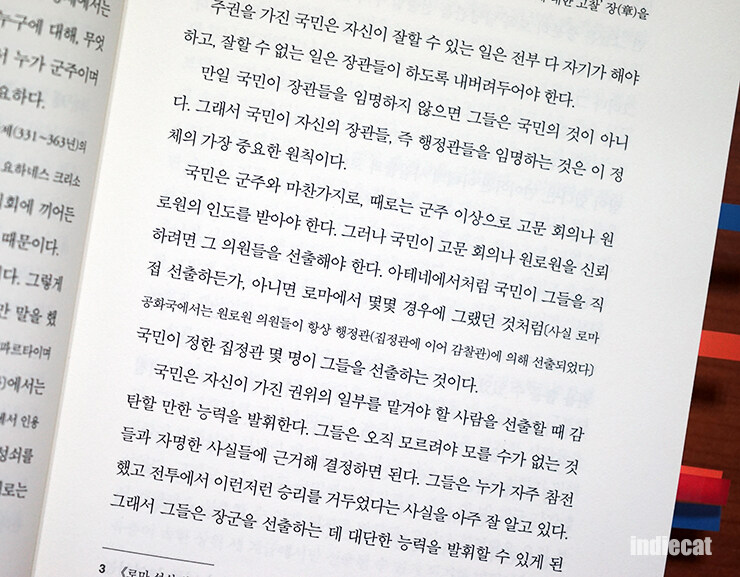 에서는
누구에 대해, 무엇
누가 군주이며
요하다.
제(331~363년)의
요하네스 크리소
의회에 끼어든
때문이다.
다. 그렇게
만 말을 했
파르타이며
에서는
해서 인용
형쇠를
로는
대한 고찰' 장(章)을
주권을 가진 국민은 자신이 잘할 수 있는 일은 전부 다 자기가 해야
하고, 잘할 수 없는 일은 장관들이 하도록 내버려두어야 한다.
만일 국민이 장관들을 임명하지 않으면 그들은 국민의 것이 아니
다. 그래서 국민이 자신의 장관들, 즉 행정관들을 임명하는 것은 이 정
체의 가장 중요한 원칙이다.
국민은 군주와 마찬가지로, 때로는 군주 이상으로 고문 회의나 원
로원의 인도를 받아야 한다. 그러나 국민이 고문 회의나 원로원을 신뢰
하려면 그 의원들을 선출해야 한다. 아테네에서처럼 국민이 그들을 직
접 선출하든가, 아니면 로마에서 몇몇 경우에 그랬던 것처럼[사실 로마
공화국에서는 원로원 의원들이 항상 행정관(집정관에 이어 감찰관)에 의해 선출되었다]
국민이 정한 집정관 몇 명이 그들을 선출하는 것이다.
국민은 자신이 가진 권위의 일부를 맡겨야 할 사람을 선출할 때 감
탄할 만한 능력을 발휘한다. 그들은 오직 모르려야 모를 수가 없는 것
들과 자명한 사실들에 근거해 결정하면 된다. 그들은 누가 자주 참전
했고 전투에서 이런저런 승리를 거두었다는 사실을 아주 잘 알고 있다.
그래서 그들은 장군을 선출하는 데 대단한 능력을 발휘할 수 있게 된
3 《로마
indiecat